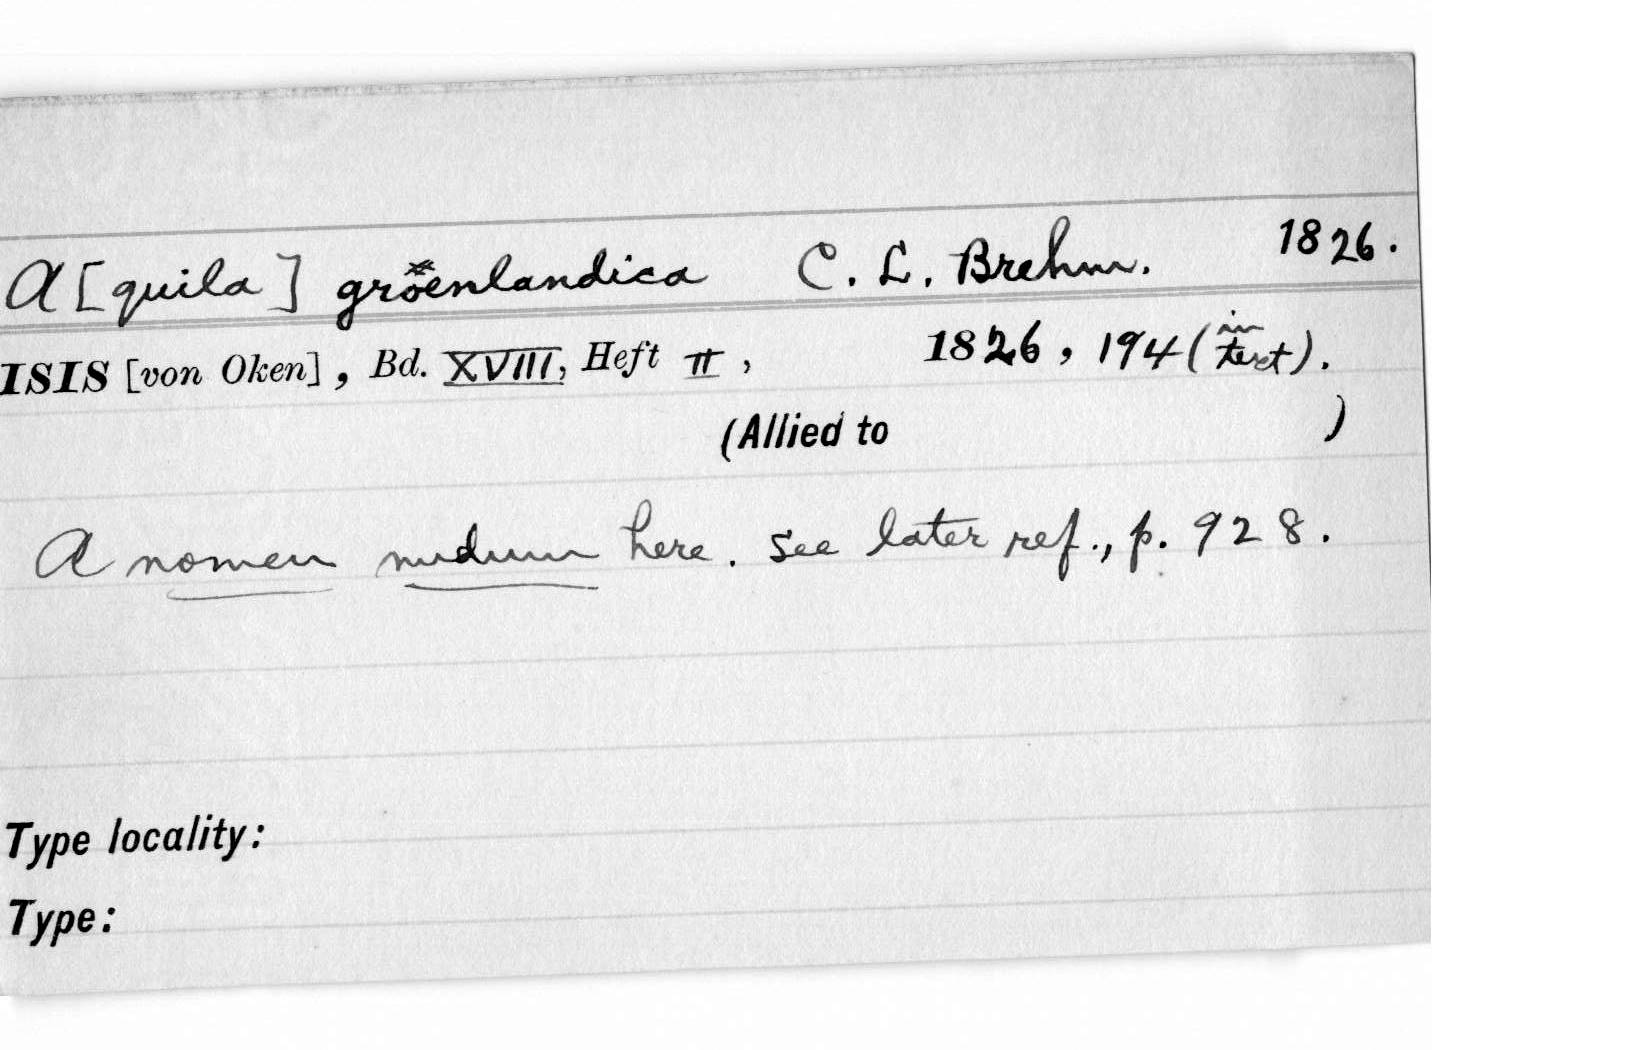 A[quila] gröenlandica C. L. Brehm. 1826.
ISIS [von Oken], Bd. XVIII, Heft II, 1826, 194 (in text).
(Allied to )
A nomen nudum here. See later ref., p. 928.
Type locality:
Type: